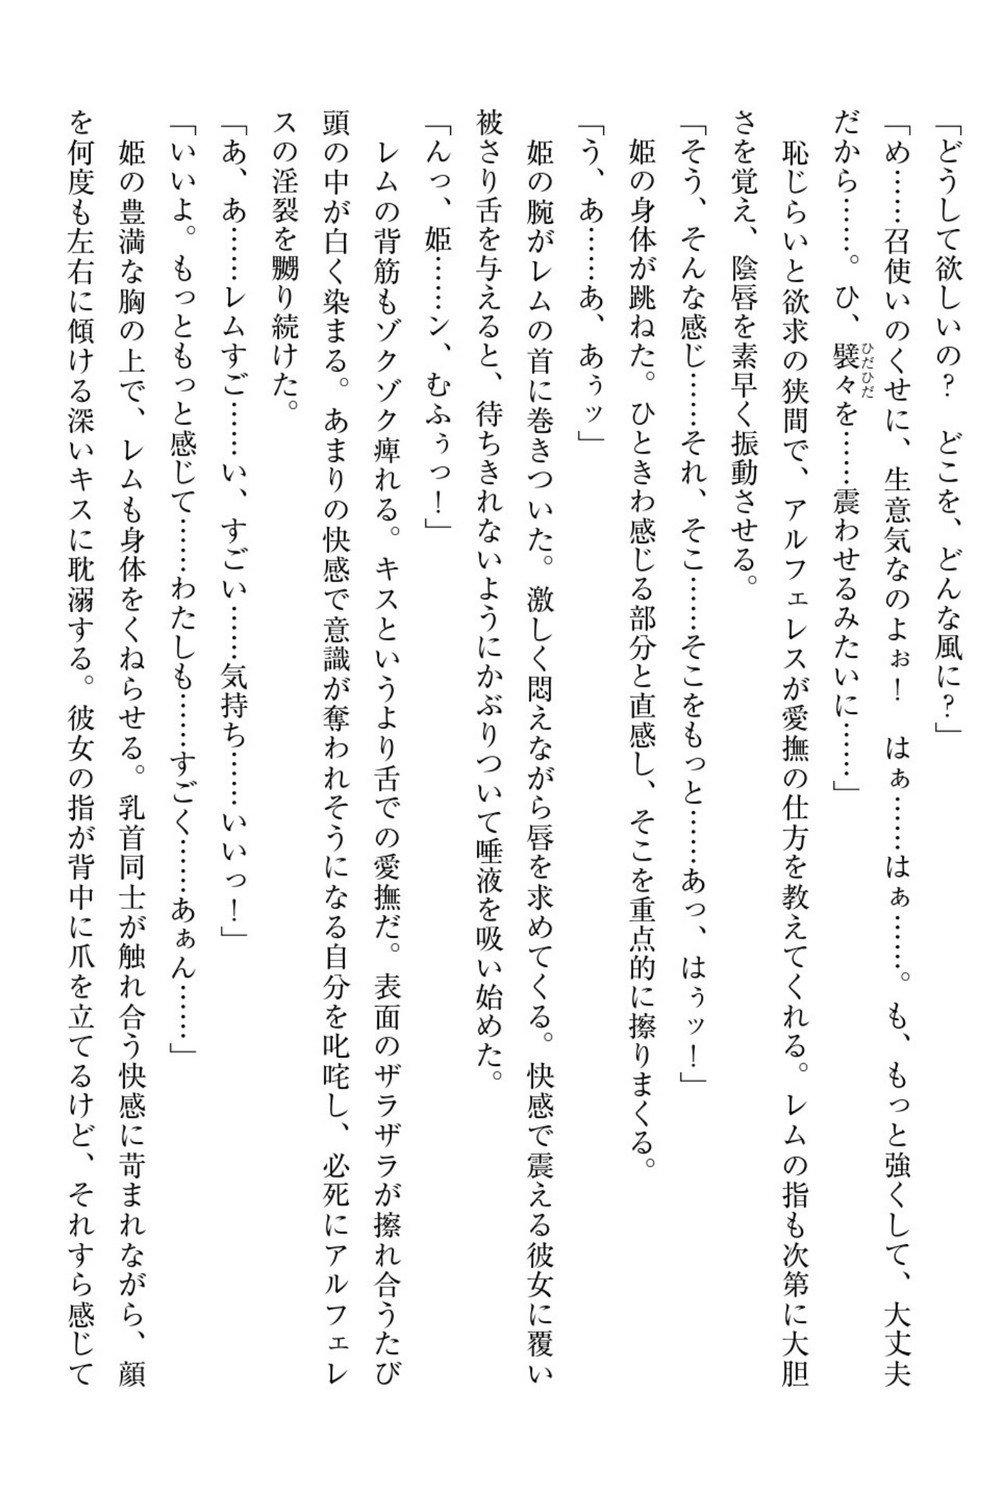 「どうして欲しいの？　どこを、どんな風に？」
「め……召使いのくせに、生意気なのよぉ！　はぁ……はぁ……。も、もっと強くして、大丈夫
だから……。ひ、襞々を……震わせるみたいに……」
　恥じらいと欲求の狭間で、アルフェレスが愛撫の仕方を教えてくれる。レムの指も次第に大胆
さを覚え、陰唇を素早く振動させる。
「そう、そんな感じ……それ、そこ……そこをもっと……あっ、はぅッ！」
　姫の身体が跳ねた。ひときわ感じる部分と直感し、そこを重点的に擦りまくる。
「う、あ……あ、あぅッ」
　姫の腕がレムの首に巻きついた。激しく悶えながら唇を求めてくる。快感で震える彼女に覆い
被さり舌を与えると、待ちきれないようにかぶりついて唾液を吸い始めた。
「んっ、姫……ン、むふぅっ！」
　レムの背筋もゾクゾク痺れる。キスというより舌での愛撫だ。表面のザラザラが擦れ合うたび
頭の中が白く染まる。あまりの快感で意識が奪われそうになる自分を叱咤し、必死にアルフェレ
スの淫裂を嬲り続けた。
「あ、あ……レムすご……い、すごい……気持ち……いいっ！」
「いいよ。もっともっと感じて……わたしも……すごく……あぁん……」
　姫の豊満な胸の上で、レムも身体をくねらせる。乳首同士が触れ合う快感に苛まれながら、顔
を何度も左右に傾ける深いキスに耽溺する。彼女の指が背中に爪を立てるけど、それすら感じて
ひだひだ